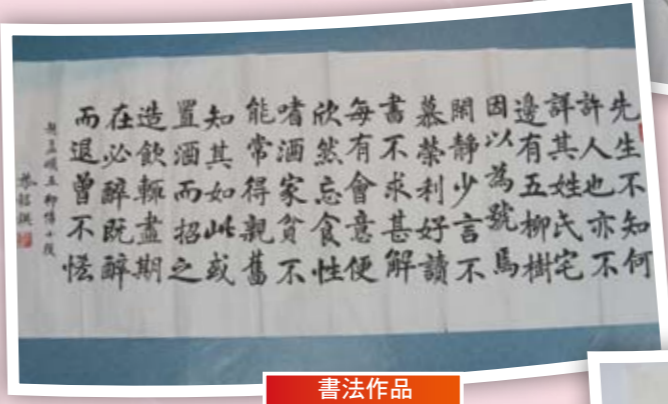 先生不知何
許人也亦不
詳其姓氏宅
邊有五柳樹
因以為號焉
閑靜少言不
慕榮利好讀
書不求甚解
每有會意便
欣然忘食性
嗜酒家貧不
能常得親舊
知其如此或
置酒而招之
造飲輒盡期
在必醉既醉
而退曾不恡
五柳傳
書法作品